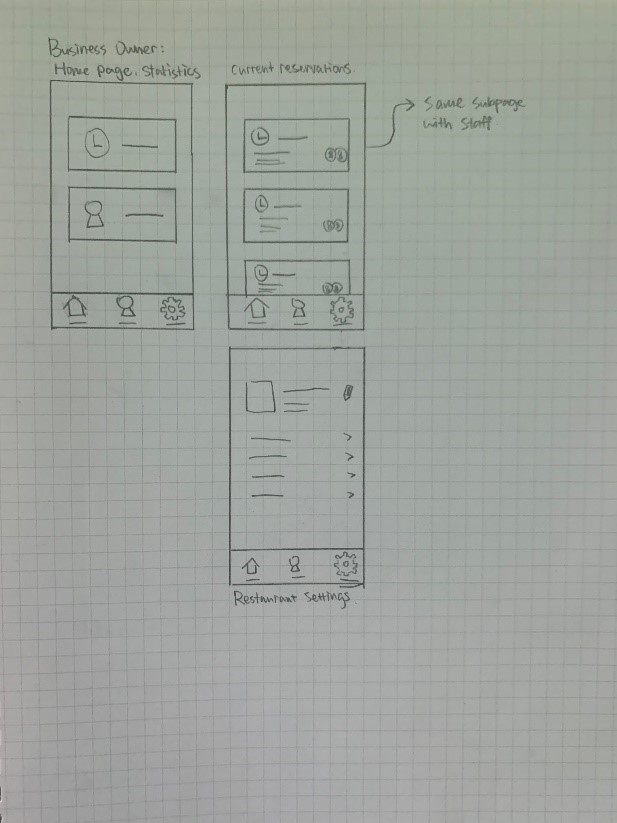 Business Owner:
Home page. Statistics
Current reservations.
Same subpage
with Staff
Restaurant Settings.